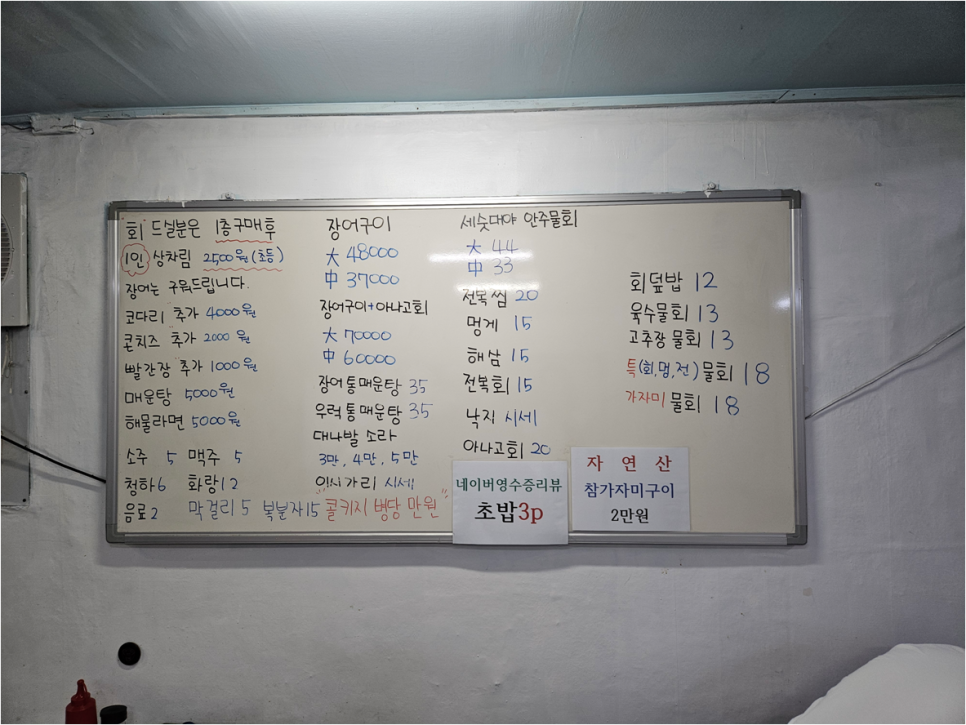 회 드실분은 1층구매후
1인 상차림 2500원(초등)
장어는 구워드립니다.
코다리 추가 4000원
콘치즈 추가 2000원
빨간장 추가 1000원
매운탕 5000원
해물라면 5000원
소주 5 맥주 5
청하6 화랑12
음료2 막걸리5 복분자15 "콜키지 병당 만원"
장어구이
大 48000
中 37000
장어구이+아나고회
大 70000
中 60000
장어통매운탕 35
우럭통매운탕 35
대나발 소라
3만, 4만, 5만
이시가리 시세
세숫대야 안주물회
大 44
中 33
전복찜 20
멍게 15
해삼 15
전복회 15
낙지 시세
아나고회 20
네이버영수증리뷰
초밥3p
회덮밥 12
육수물회 13
고추장 물회 13
특(회,멍,전) 물회 18
가자미 물회 18
자 연 산
참가자미구이
2만원